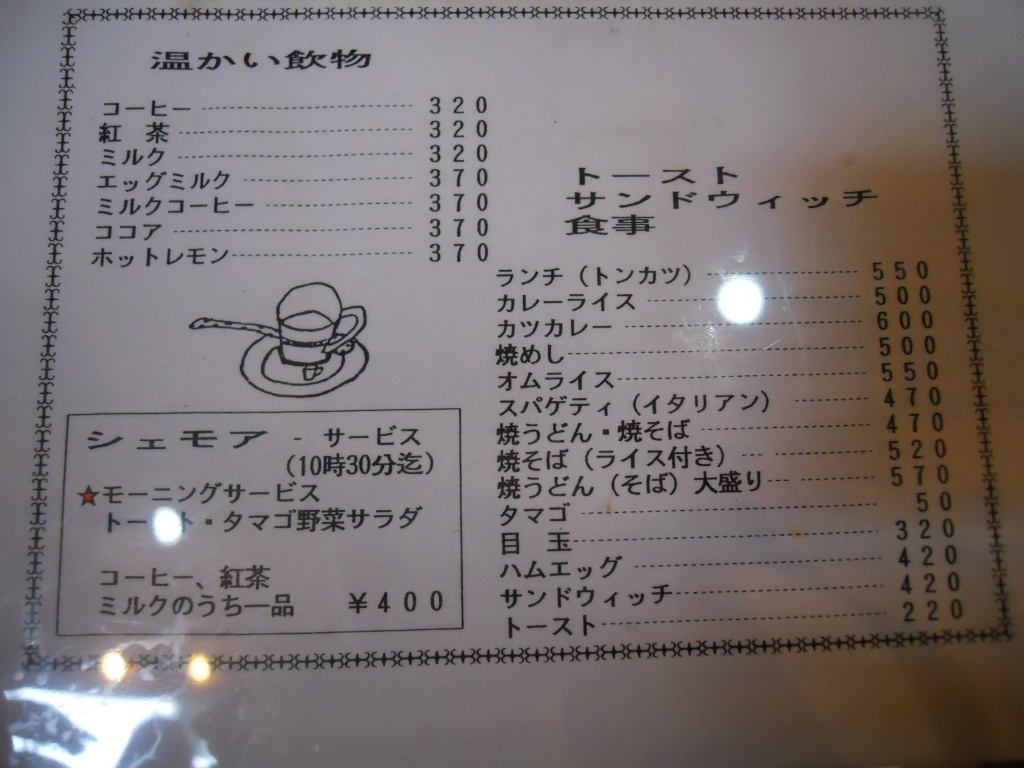 温かい飲物
コーヒー 320
紅 茶 320
ミルク 320
エッグミルク 370
ミルクコーヒー 370
ココア 370
ホットレモン 370
シェモア - サービス
(10時30分迄)
★モーニングサービス
トースト・タマゴ野菜サラダ
コーヒー、紅茶
ミルクのうち一品 ¥400
トースト
サンドウィッチ
食事
ランチ(トンカツ) 550
カレーライス 500
カツカレー 600
焼めし 500
オムライス 550
スパゲティ(イタリアン) 470
焼うどん・焼そば 470
焼そば(ライス付き) 520
焼うどん(そば)大盛り 570
タマゴ 50
目 玉 320
ハムエッグ 420
サンドウィッチ 420
トースト 220